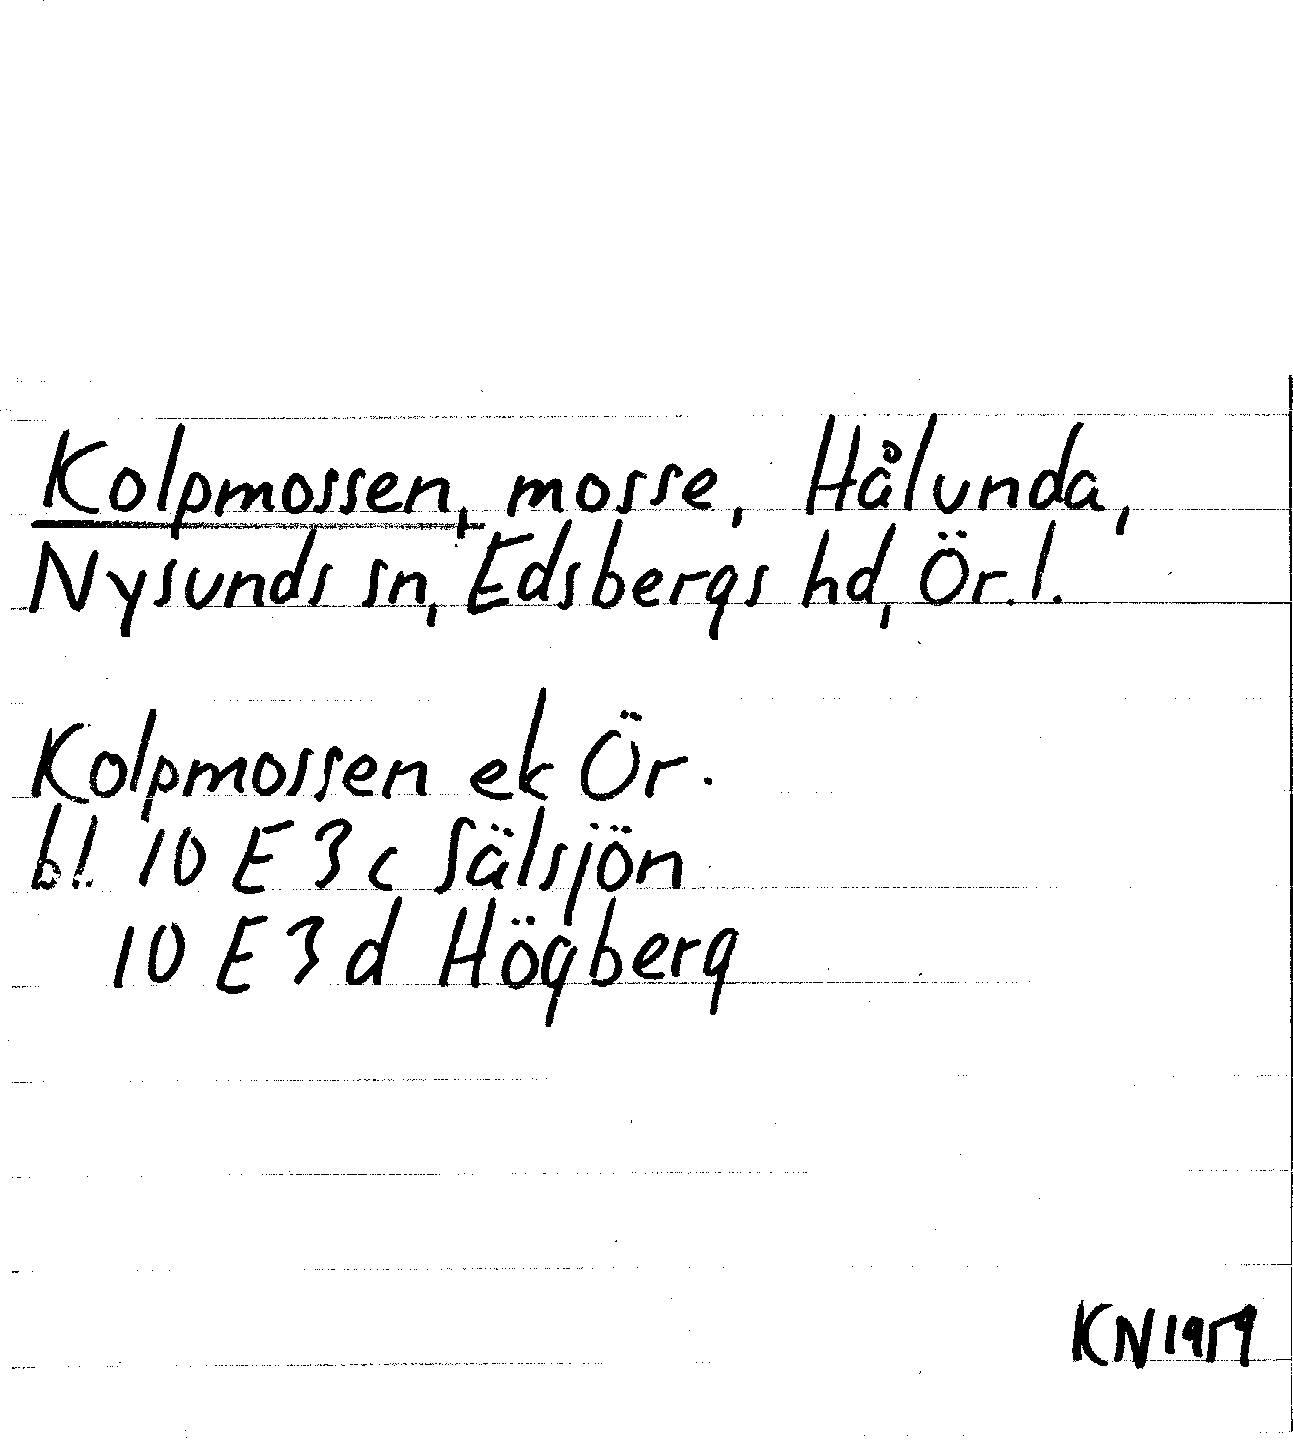 Kolpmossen, mosse, Hålunda,
Nysunds sn, Edsbergs hd, Ör. l.
Kolpmossen ek Ör.
bl. 10 E 3 c Sälsjön
10 E 3 d Högberg
KN 1959